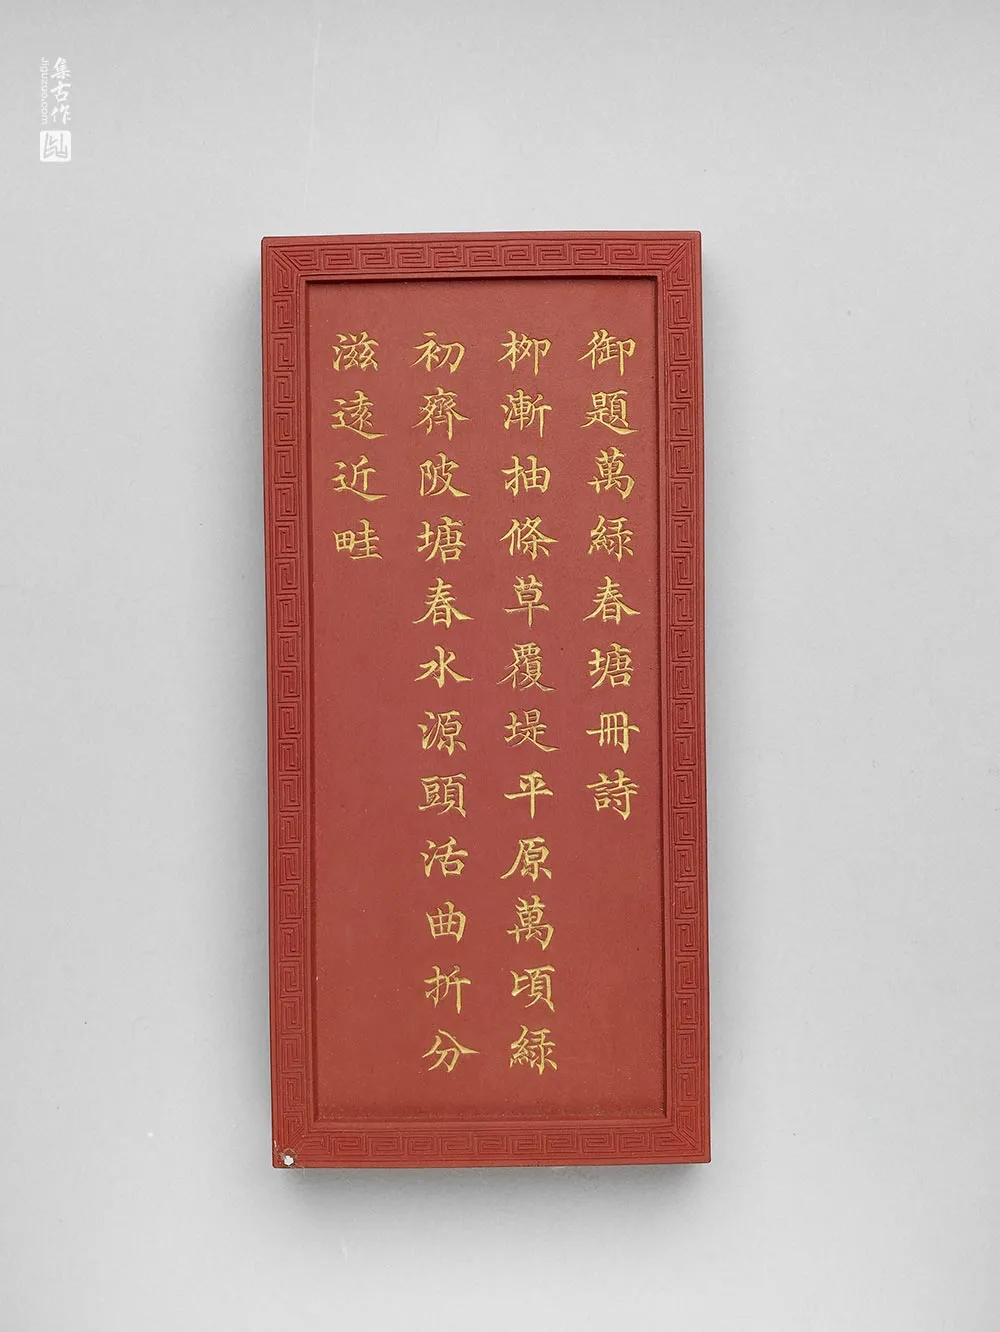 御題萬緑春塘冊詩
桞漸抽條草覆堤平原萬頃緑
初齊陂塘春水源頭活曲折分
滋逺近畦
集古作
Jiguzuo.com